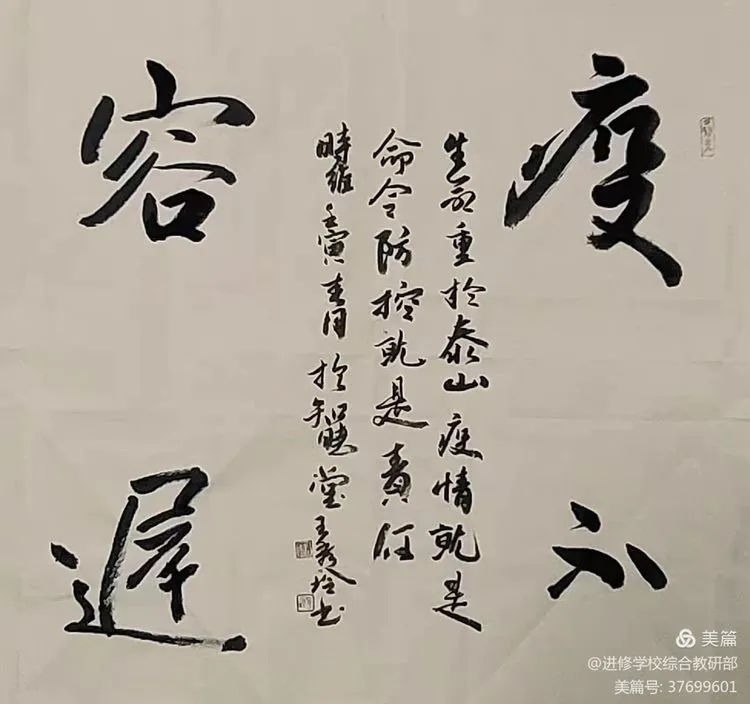 疫
不
容
遲
生命重於泰山疫情就是
命令防控就是責任
時維壬寅春月於智聽堂王秀玲书
美篇
@进修学校综合教研部
美篇号: 37699601